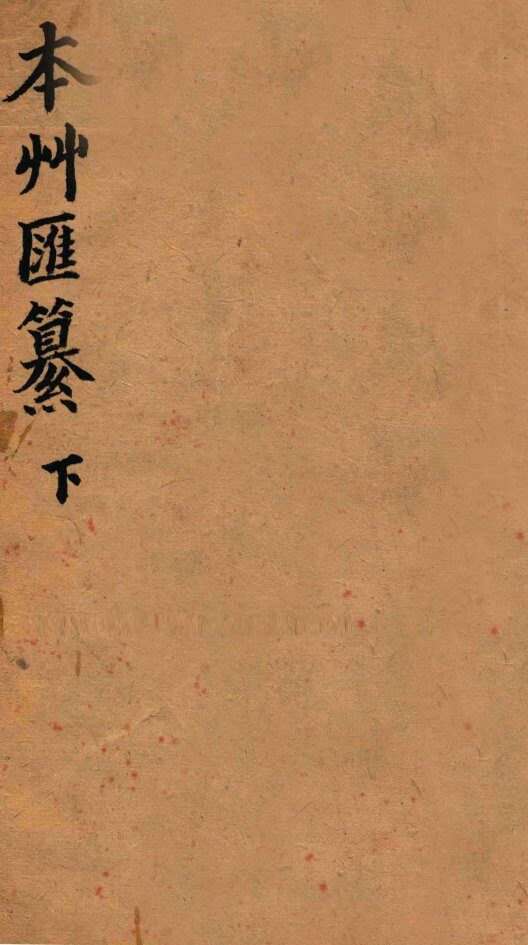 本艸匯纂下